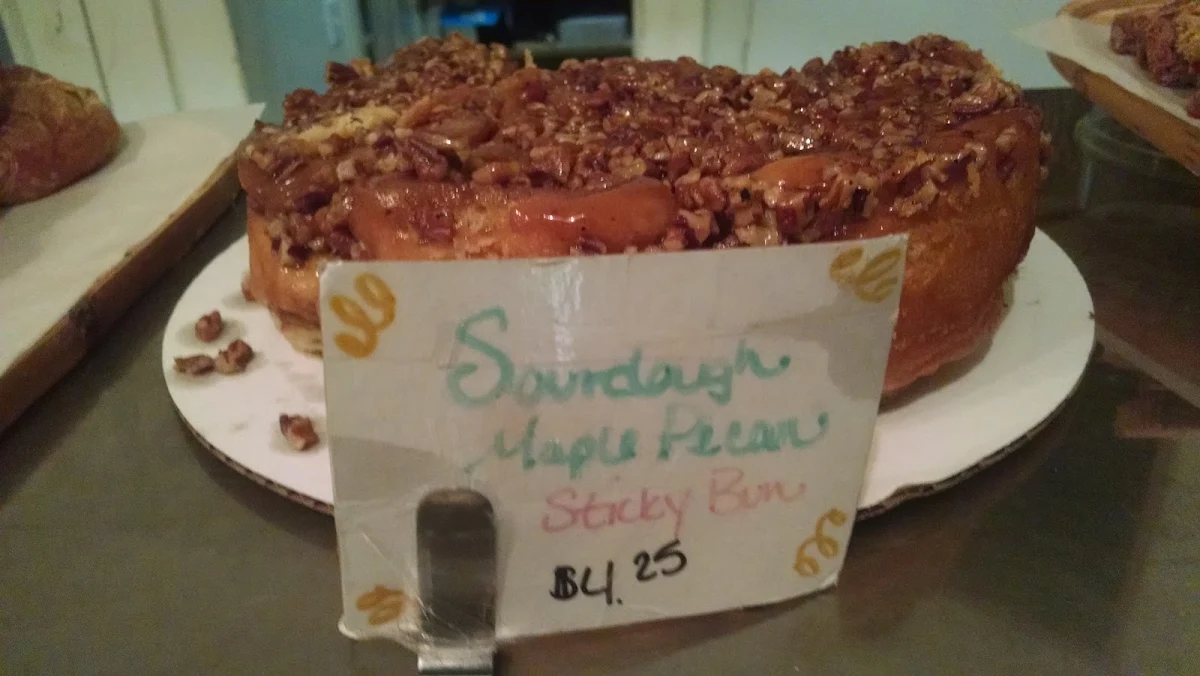 Sourdough
Maple Pecan
Sticky Bun
$4.25